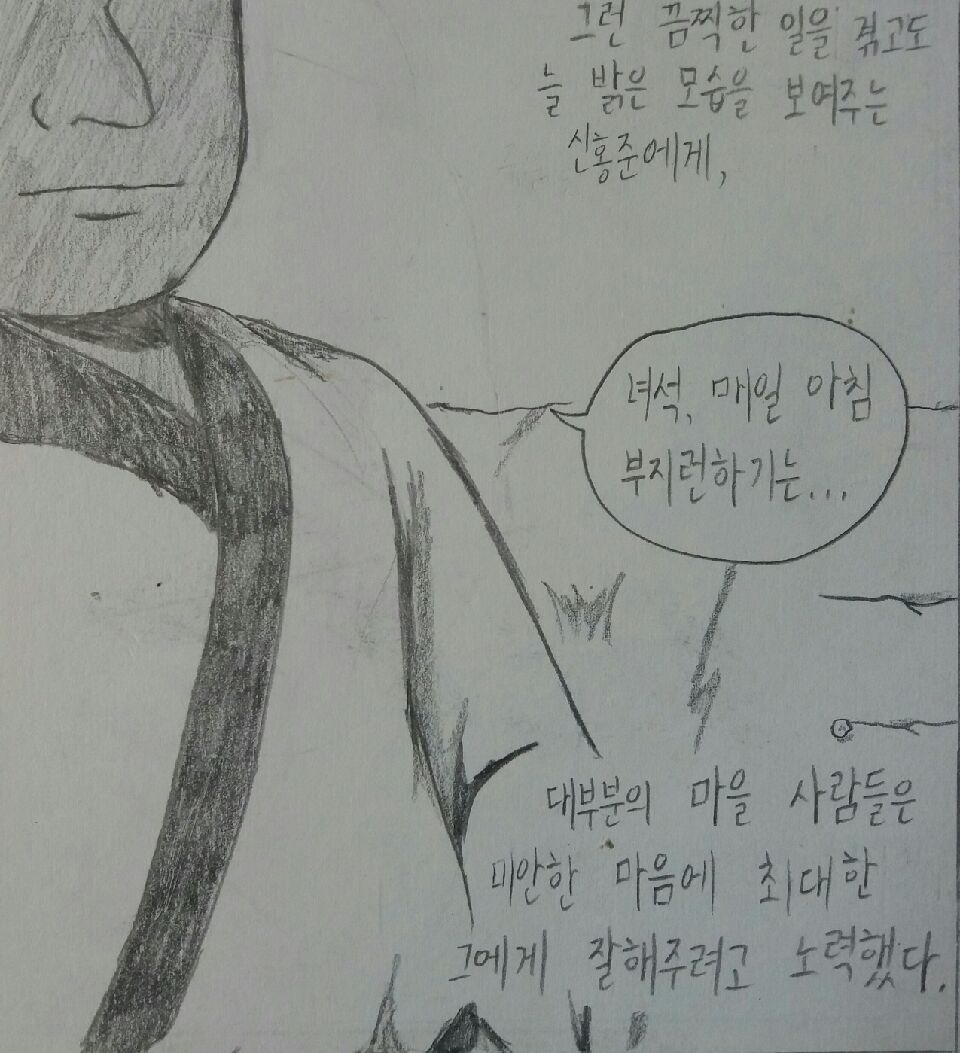 그런 끔찍한 일을 겪고도
늘 밝은 모습을 보여주는
신홍준에게,
녀석, 매일 아침
부지런하기는...
대부분의 마을 사람들은
미안한 마음에 최대한
그에게 잘해주려고 노력했다.